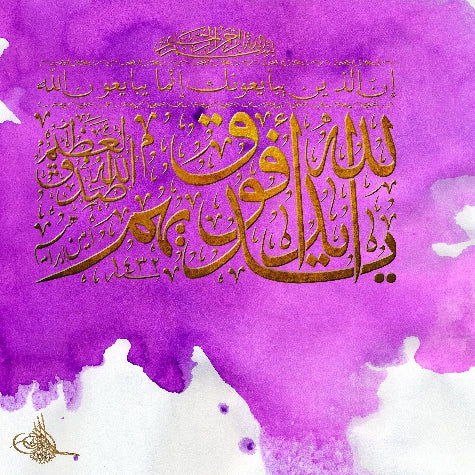 بسم الله الرحمن الرحيم
إن الذين يبايعونك إنما يبايعون الله
يد الله فوق أيديهم
صدق الله العظيم
١٤٣٢